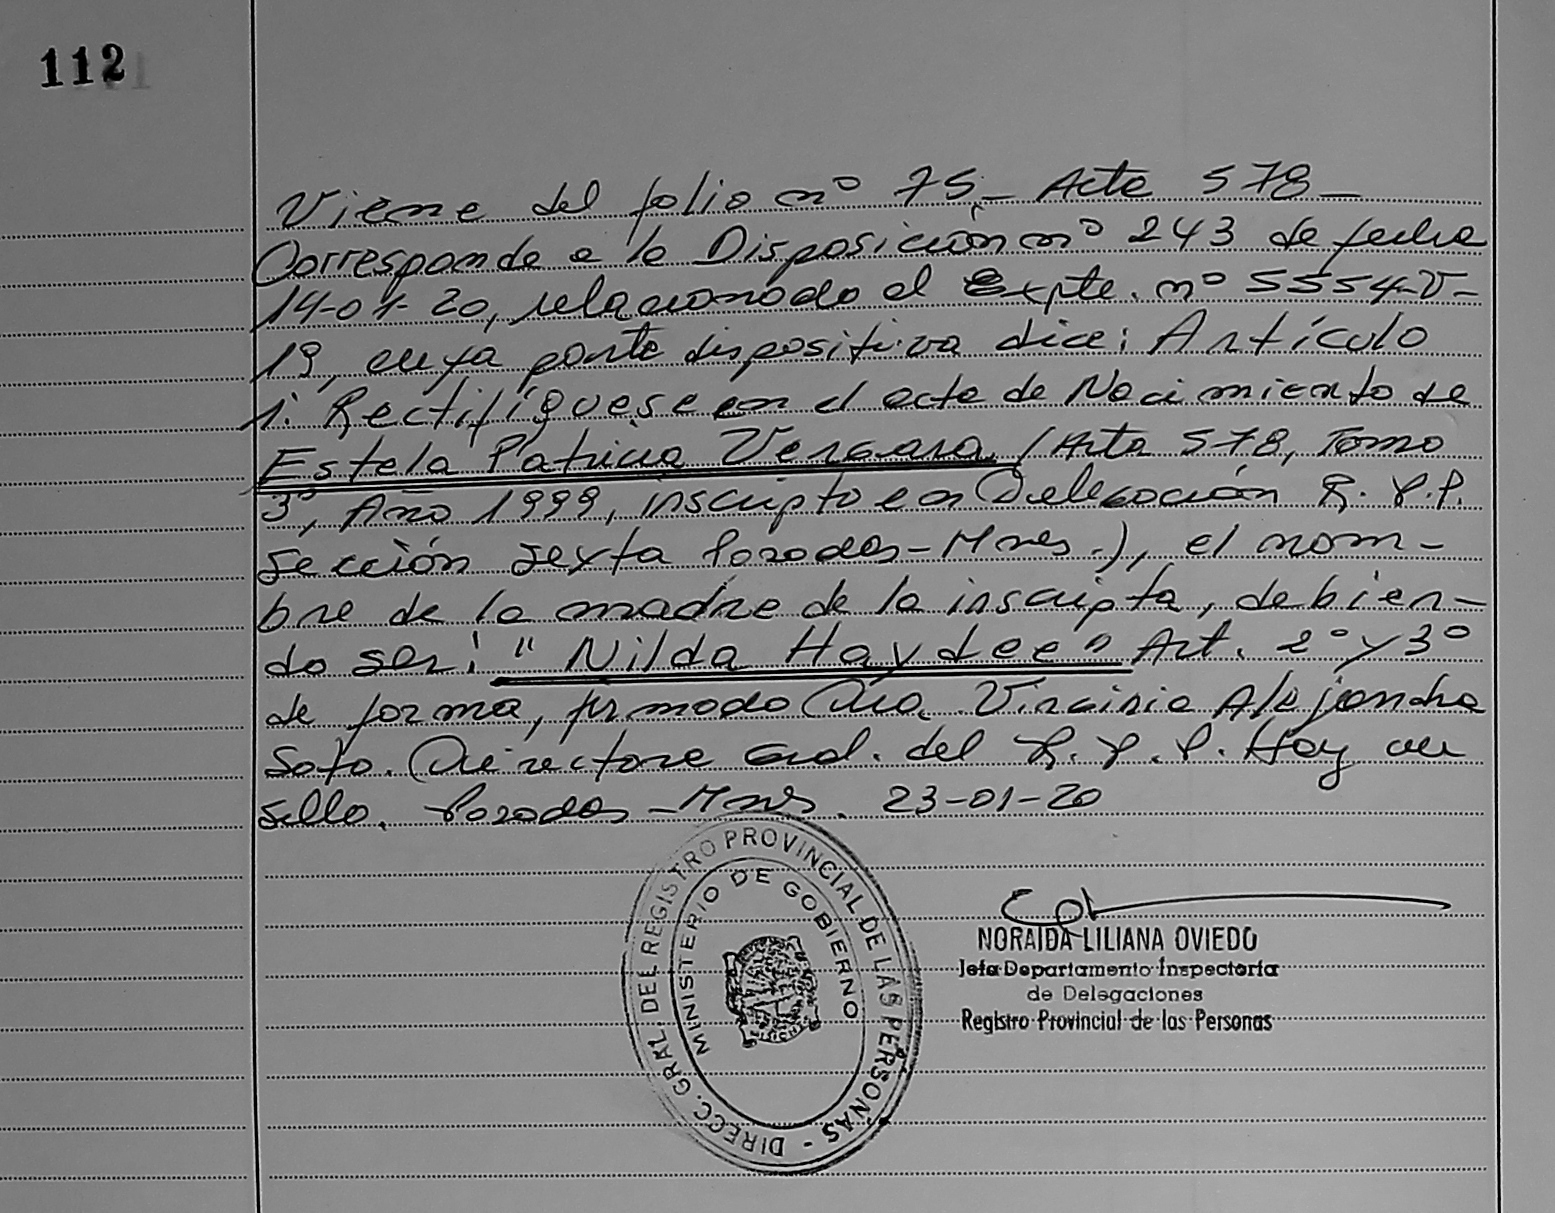 112
Viene del folio nº 75.- Acta 578-
Corresponde a la Disposición nº 243 de fecha
14-01-20, relacionado el Expte. nº 5554-V-
19, cuya parte dispositiva dice: Artículo
1: Rectifíquese en el acta de Nacimiento de
Estela Patricia Vergara (Acta 578, Tomo
3º, Año 1999, inscripto en Delegación R.P.P.
Sección Sexta Posadas-Mnes.), el nom-
bre de la madre de la inscripta, debien-
do ser: "Nilda Haydee" Art. 2º y 3º
de forma, firmado Dra. Virginia Alejandra
Soto. Directora Gral. del R.P.P. Hay un
sello. Posadas-Mnes. 23-01-20
DIRECC. GRAL. DEL REGISTRO PROVINCIAL DE LAS PERSONAS -
MINISTERIO DE GOBIERNO
NORAIDA LILIANA OVIEDO
Jefa Departamento Inspectoría
de Delegaciones
Registro Provincial de las Personas